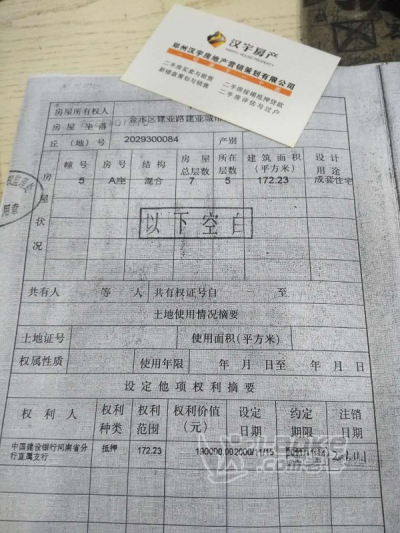 汉宇房产
郑州汉宇房地产营销策划有限公司
二手房买卖与租赁 二手房按揭抵押贷款
新楼盘策划与销售 二手房评估与过户
房屋所有权人
房屋坐落 金水区建业路建业城市
丘(地)号 2029300084 产别
房屋状况
幢号 房号 结构 房屋总层数 所在层数 建筑面积(平方米) 设计用途
5 A座 混合 7 5 172.23 成套住宅
以下空白
共有人 等 人 共有权证号自 至
土地使用情况摘要
土地证号 使用面积(平方米)
权属性质 使用年限 年 月 日至 年 月 日
设定他项权利摘要
权利人 权利种类 权利范围 权利价值(元) 设定日期 约定期限 注销日期
中国建设银行河南省分行直属支行 抵押 172.23 190000.00 2000/11/15